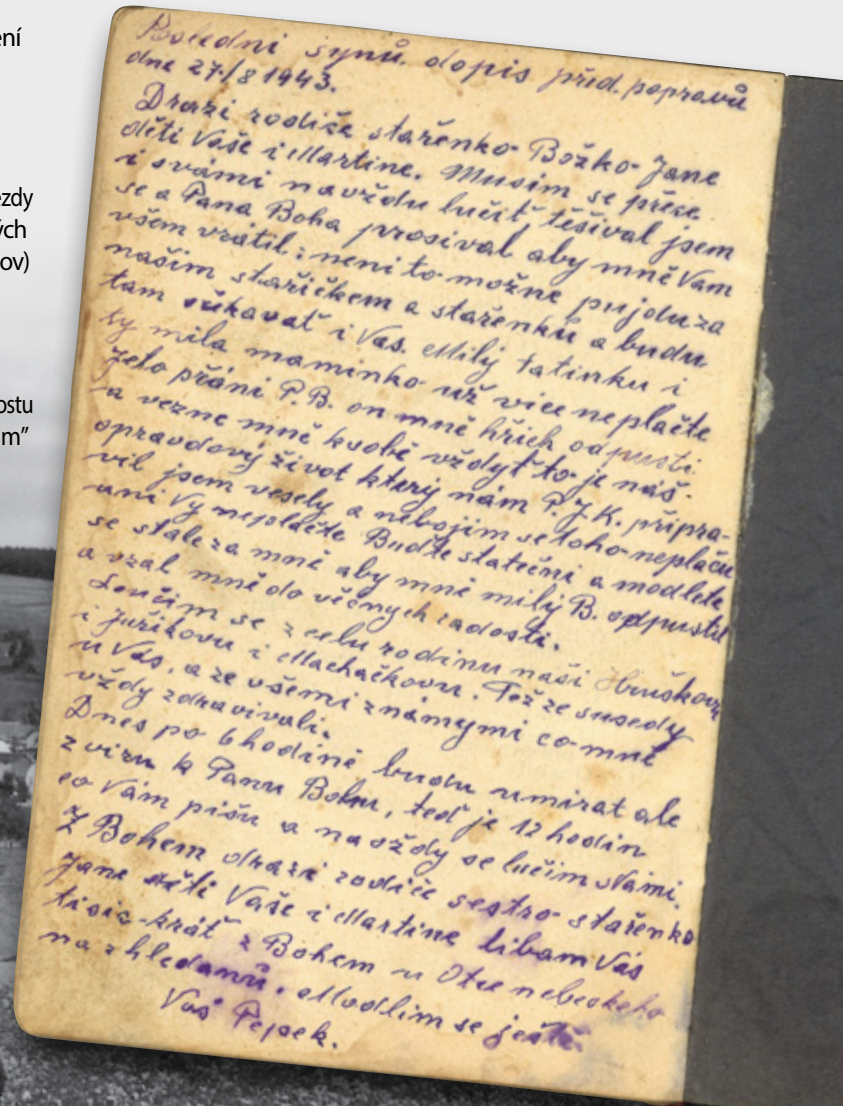 ení
ezdy
ých
ov)
ostu
m"
Poslední synů dopis před popravů
dne 27./8 1943.
Drazí rodiče stařenko Božko Jane
děti Vaše i Martine. Musim se přece
i svámi navždu lučit, těšival jsem
se a Pana Boha prosival, aby mně Vam
všem vrátil; neni to možne pujdu za
našim staříčkem a stařenků a budu
tam čŭkavať i Vas. Milý tatinku i
ty mila maminko už vice neplačte
Jeto přáni P.B. on mně hřich odpusti
a vezne mně ksobě vždyť to je náš
opravdový život který nám P.J.K. připra-
vil jsem vesely a nebojim setoho neplaču
ani Vy neplačte Buďte statečni a modlete
se stale za mně aby mně milý B. odpustil
a vzal mně do věčnych radosti.
Loučim se z celu rodinu naši Hruškovu
i Juřikovu i Machačkovu. Též ze susedy
u Vás, a ze všemi známymi co mně
vždy zdravivali.
Dnes po 6hodině budu umirat ale
z viru k Panu Bohu, teď je 12 hodin
co Vám pišu a navždy se lučim sVámi.
Z Bohem drazí rodiče sestro stařenko
Jane děti Vaše i Martine libam Vás
tisic-kráť z Bohem u Otce nebeskeho
na zhledanů. Modlim se ještě.
Vaš Pepek.